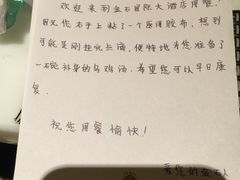 欢迎来到金石国际大酒店用餐!
因见您右手上粘了一个医用胶布,想到
可能是刚挂完水滴,便特地为您准备了
一碗补身的乌鸡汤,希望您可以早日康
复。
祝您用餐愉快!
爱您的金石人